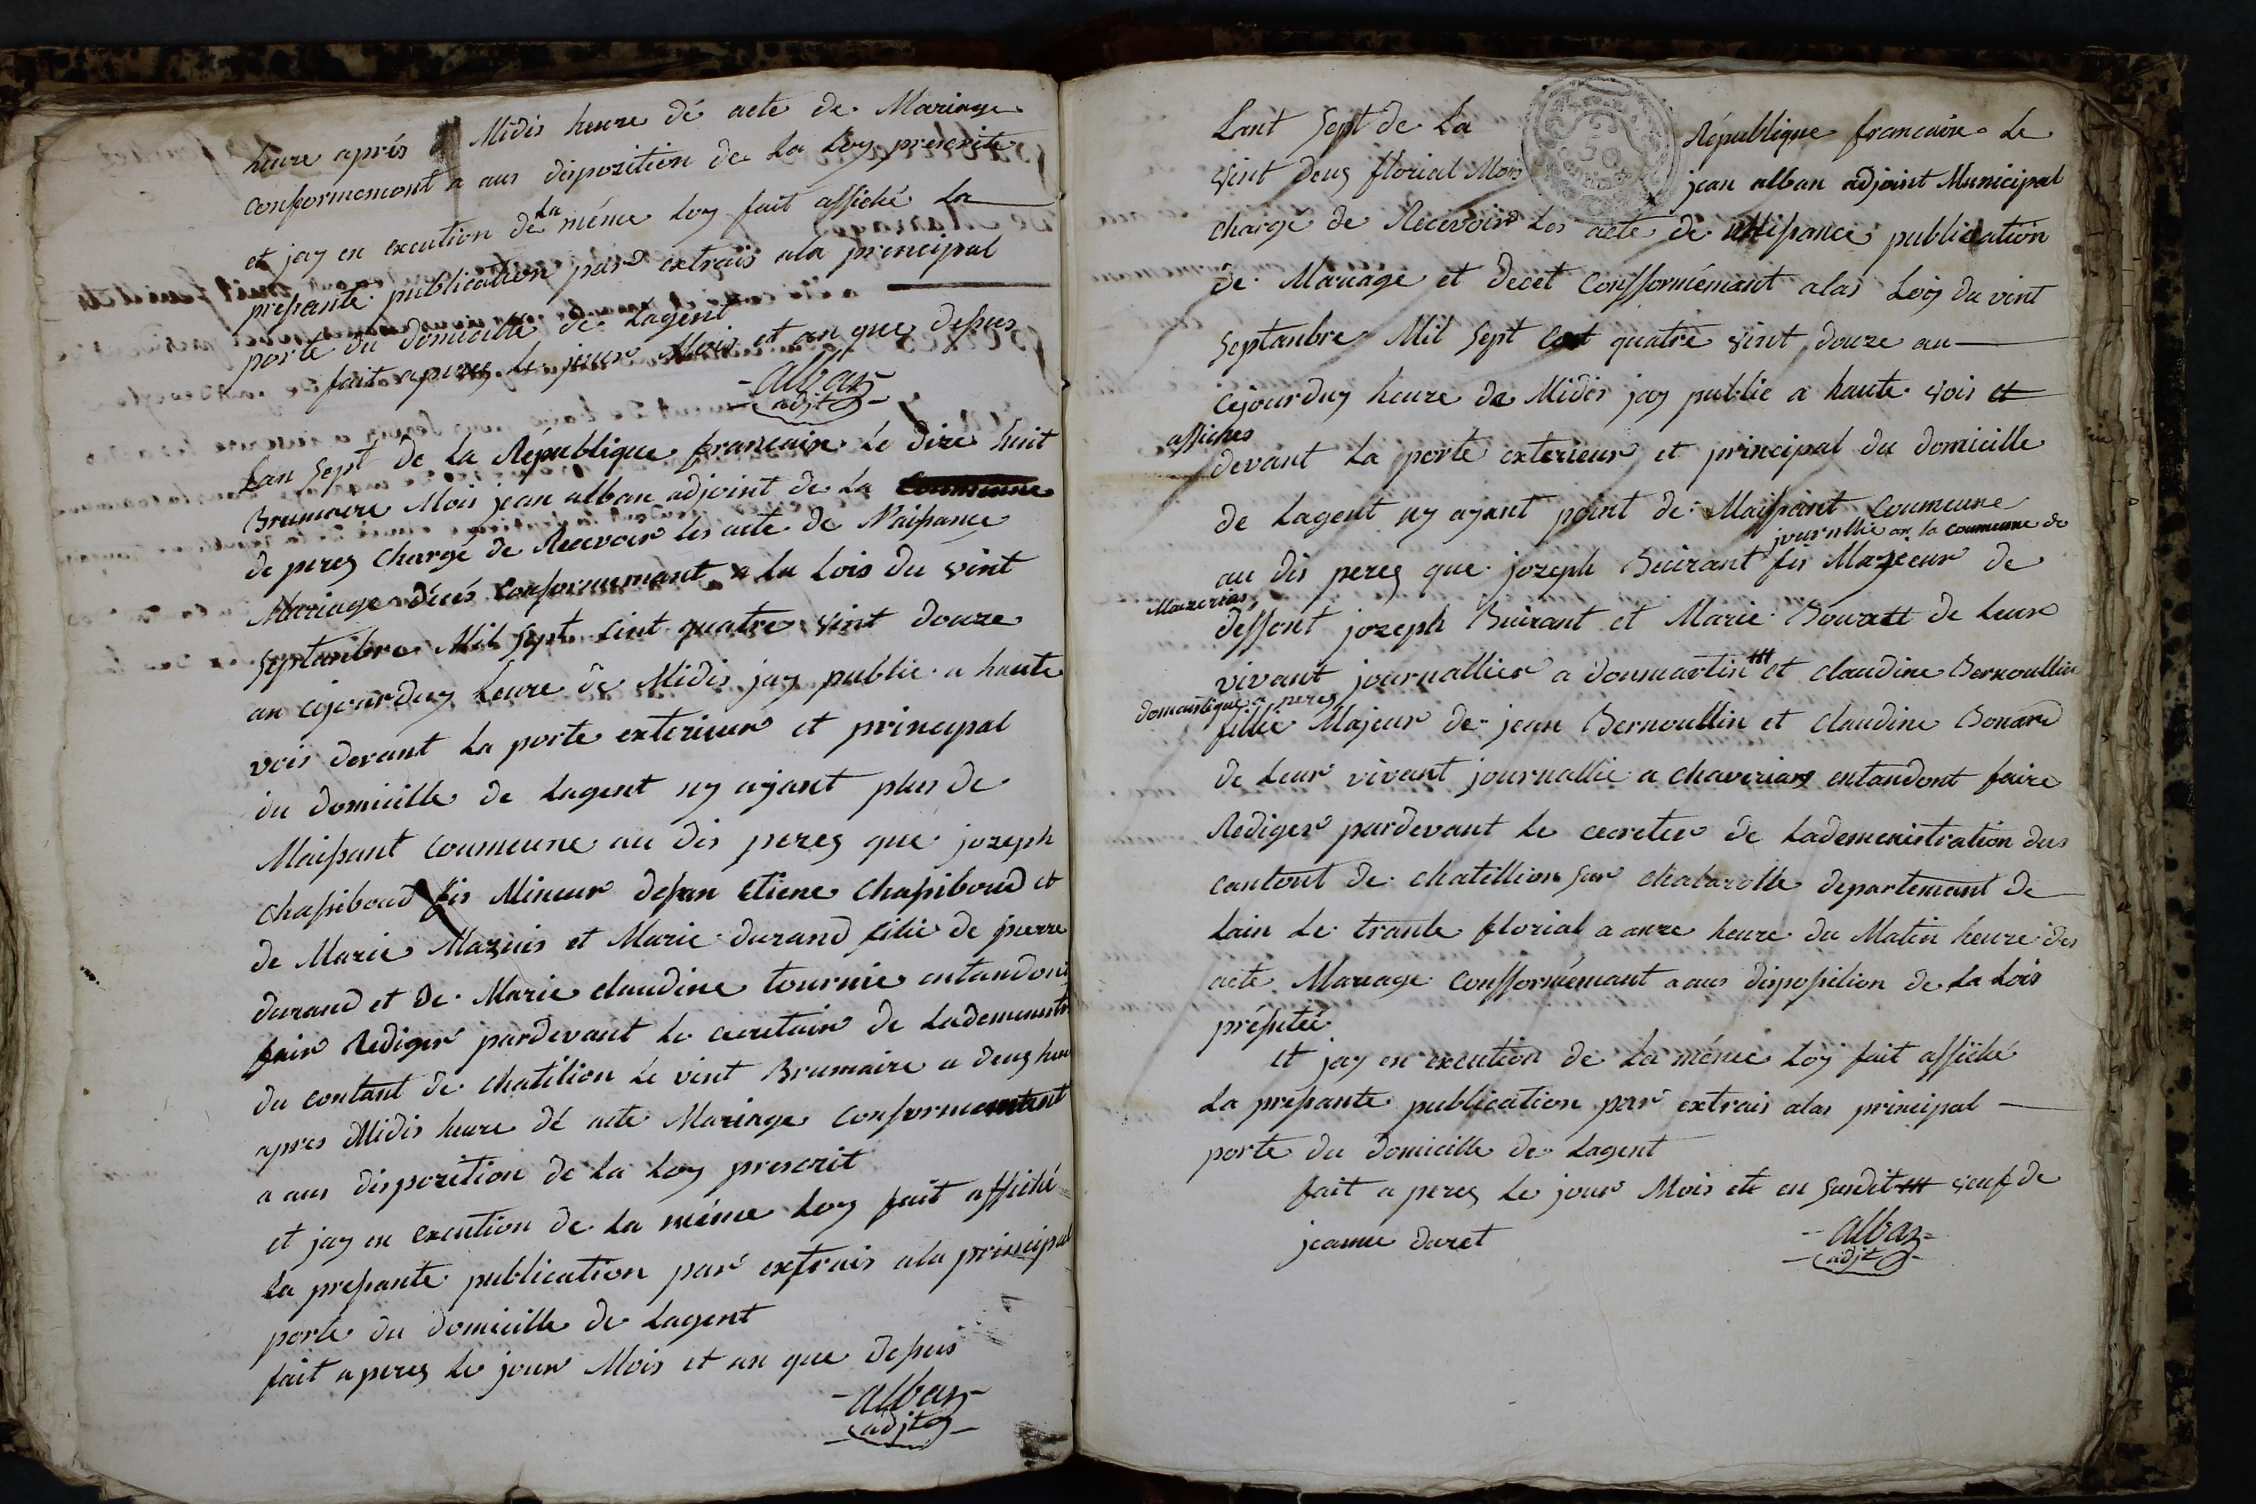 heure aprés Midis heure dé acte de Mariage
conformemont a aus disposition de la Loy prescrite
et jay en excution de la méme Loy fait affiché La
presante publication par extrais ala prencipal
porte du domicille de Lagent
fait a perez Le jour Mois et an que desus
alban
adjt
Lan Sept de La République francaire Le dize huit
Brumaire Mois jean alban adjoint de La Coummune
de perez chargé de Recevoir les acte de Naissance
Mariage décés Conformemant a La Lois du vint
Septanbre Mil Sept Cent quatre vint douze
an cejourduy heure de Midis jay public a haute
vois devant La porte exterieur et principal
du domicille de Lagent ny ayant plus de
Maissant Coumeune au dis perez que jozeph
chassiboud fis Mineur desan Etiene Chassiboud et
de Marie Mazuis et Marie durand filie de pierre
durand et de Marie claudine tournie entandont
fair Rediger pardevant le cecretair de Lademenistr
du contant de chatilion Le vint Brumaire a deux heur
apres Midis heure dé acte Mariage Conformemtent
a aus disporition de La Loy prescrit
et jay en excution de La méme Loy fait affiché
La presante publication par extrais ala principal
porte du domicille de Lagent
fait a perez Le jour Mois et an que desus
alban
adjt
Lant Sept de La République francaire Le
vint deux florial Mois jean alban adjoint Municipal
chargé de Recevoir Les acte de naissance publication
de Mariage et decet Confformémant alas Loy du vint
Septanbre Mil Sept Cent quatre vint douze au
cejourduy heure de Midis jay public a haute vois et
affiches
devant La porte exterieur et principal du domicille
de Lagent ny ayant point de Maissant Coumeune
journllie an la coumeune de
au dis perez que jozeph Buirant fis Mazeeur de
Mazerias
deffont jozeph Buirant et Marie Bouratt de Leur
vivant journallier a donmartin et claudine Bernoullin
domaistique a perez
fillie Majeur de jean Bernoullin et claudine Bonard
de Leur vivant journallie a chaveriay entandont faire
Rediger pardevant Le cecreter de Lademenistration dus
cantont de chatillion Sur chalarolle departement de
Lain Le trante florial a onze heure du Matin heure des
acte Mariage Confformémant a aus disposition de La Lois
présitée
et jay en excution de La méme Loy fait affiché
La presante publication par extrais alas principal
porte du domicille de Lagent
fait a perez Le jour Mois et en Susdit veuf de
jeanne duret
alban
adjt